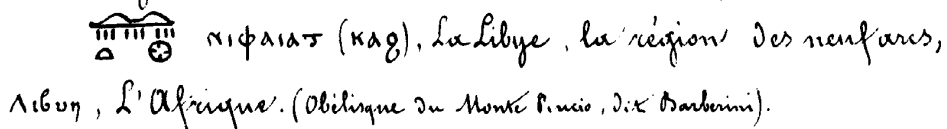 ⲛⲓⲫⲁⲓⲁⲧ (ⲕⲁϩ), La Libye, la région des neufarcs,
Λιβυη, L'Afrique. (Obélisque du Monte Pincio, dit Barberini).